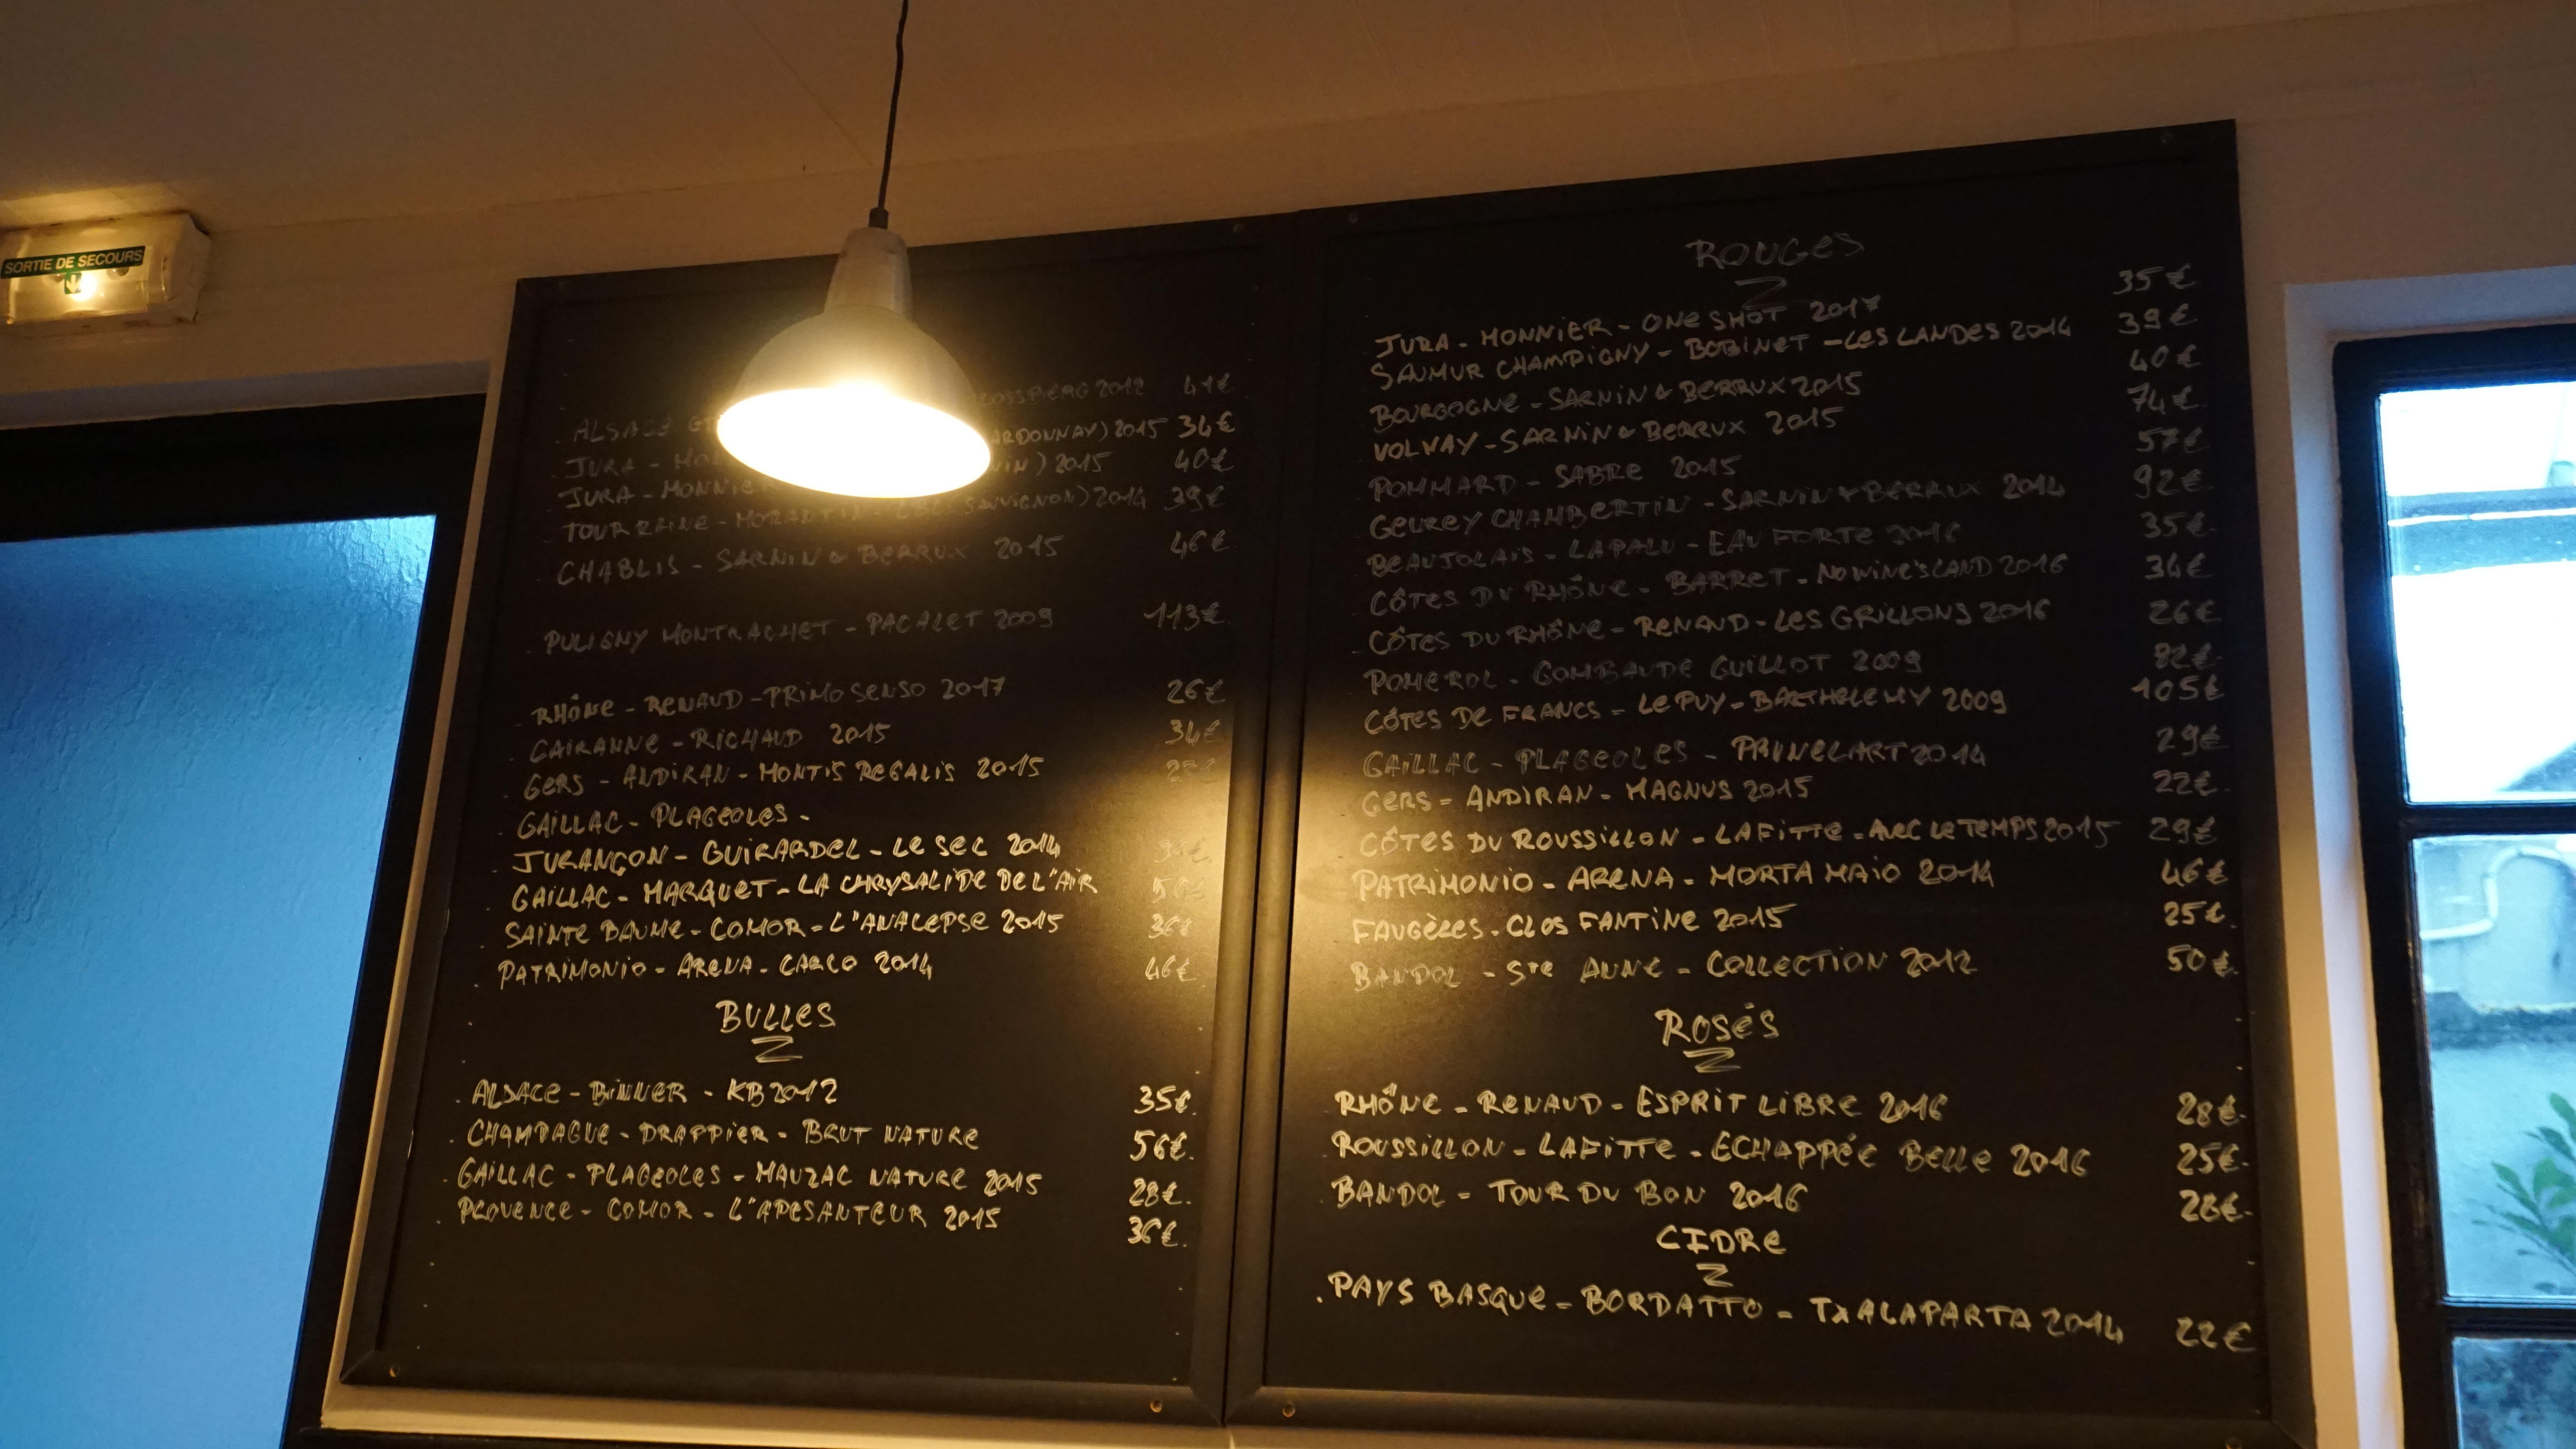 SORTIE DE SECOURS
OSSBERG 2012 41€
ALSACE
JURA - ARDONNAY) 2015 34€
JURA - MONNIER 2015 40€
TOURRAINE - MORANTIN - SAUVIGNON) 2014 39€
CHABLIS - SARNIN & BERRUX 2015 46€
PULIGNY MONTRACHET - PACALET 2009 113€
RHÔNE - RENAUD - PRIMO SENSO 2017 26€
CAIRANNE - RICHAUD 2015 34€
GERS - ANDIRAN - MONTIS REGALIS 2015
GAILLAC - PLAGEOLES -
JURANÇON - GUIRARDEL - LE SEC 2014
GAILLAC - MARQUET - LA CHRYSALIDE DE L'AIR
SAINTE BAUME - COMOR - L'ANALEPSE 2015 36€
PATRIMONIO - ARENA - CARCO 2014 46€
BULLES
ALSACE - BINNER - KB 2012 35€.
CHAMPAGNE - DRAPPIER - BRUT NATURE 56€.
GAILLAC - PLAGEOLES - MAUZAC NATURE 2015 28€.
PROVENCE - COMOR - L'APESANTEUR 2015 36€.
ROUGES
JURA - MONNIER - ONE SHOT 2017 35€
SAUMUR CHAMPIGNY - BOBINET - LES LANDES 2014 39€
BOURGOGNE - SARNIN & BERRUX 2015 40€
VOLNAY - SARNIN & BERRUX 2015 74€
POMMARD - SABRE 2015 57€
GEVREY CHAMBERTIN - SARNIN & BERRUX 2014 92€
BEAUJOLAIS - LAPALU - EAU FORTE 2016 35€
CÔTES DU RHÔNE - BARRET - NO WINE'S LAND 2016 34€
CÔTES DU RHÔNE - RENAUD - LES GRILLONS 2016 26€
POMEROL - GOMBAUDE GUILLOT 2009 82€
CÔTES DE FRANCS - LE PUY - BARTHELEMY 2009 105€
GAILLAC - PLAGEOLES - PRUNELART 2014 29€
GERS - ANDIRAN - MAGNUS 2015 22€
CÔTES DU ROUSSILLON - LAFITTE - AVEC LE TEMPS 2015 29€
PATRIMONIO - ARENA - MORTA MAIO 2014 46€
FAUGÈRES - CLOS FANTINE 2015 25€.
BANDOL - STE ANNE - COLLECTION 2012 50€.
ROSÉS
RHÔNE - RENAUD - ESPRIT LIBRE 2016 28€.
ROUSSILLON - LAFITTE - ECHAPPÉE BELLE 2016 25€.
BANDOL - TOUR DU BON 2016 28€.
CIDRE
. PAYS BASQUE - BORDATTO - TXALAPARTA 2014 22€